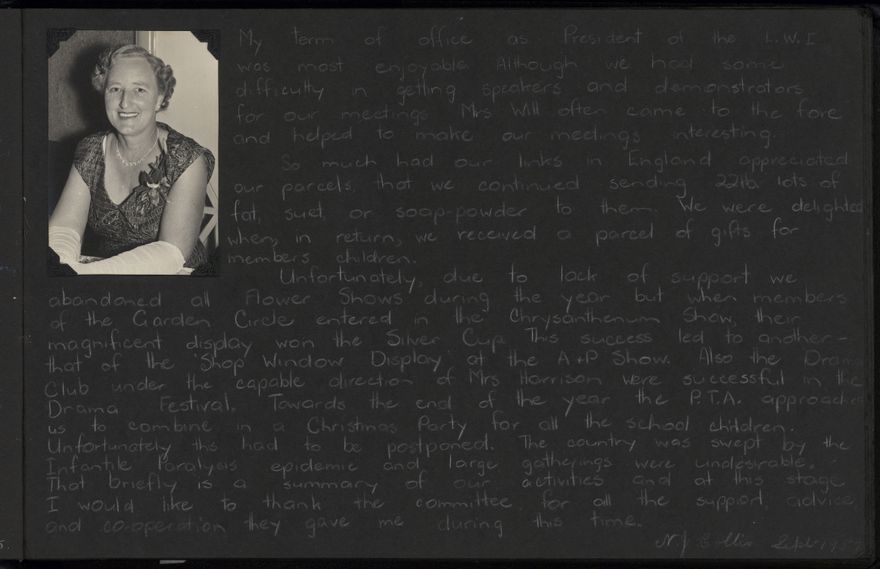 My term of office as President of the L.W.I
was most enjoyable. Although we had some
difficulty in getting speakers and demonstrators
for our meetings Mrs Will often came to the fore
and helped to make our meetings interesting.
So much had our links in England appreciated
our parcels, that we continued sending 22lb. lots of
fat, suet, or soap-powder to them. We were delighted
when, in return, we received a parcel of gifts for
members children.
Unfortunately, due to lack of support we
abandoned all Flower Shows during the year but when members
of the Garden Circle entered in the Chrysanthemum Show, their
magnificent display won the Silver Cup. This success led to another-
that of the 'Shop Window Display' at the A+P Show. Also the Drama
Club under the capable direction of Mrs Harrison were successful in the
Drama Festival. Towards the end of the year the P.T.A. approached
us to combine in a Christmas Party for all the school children.
Unfortunately this had to be postponed. The country was swept by the
Infantile Paralysis epidemic and large gatherings were undesirable.
That briefly is a summary of our activities and at this stage
I would like to thank the committee for all the support, advice
and co-operation they gave me during this time.
N J Sept